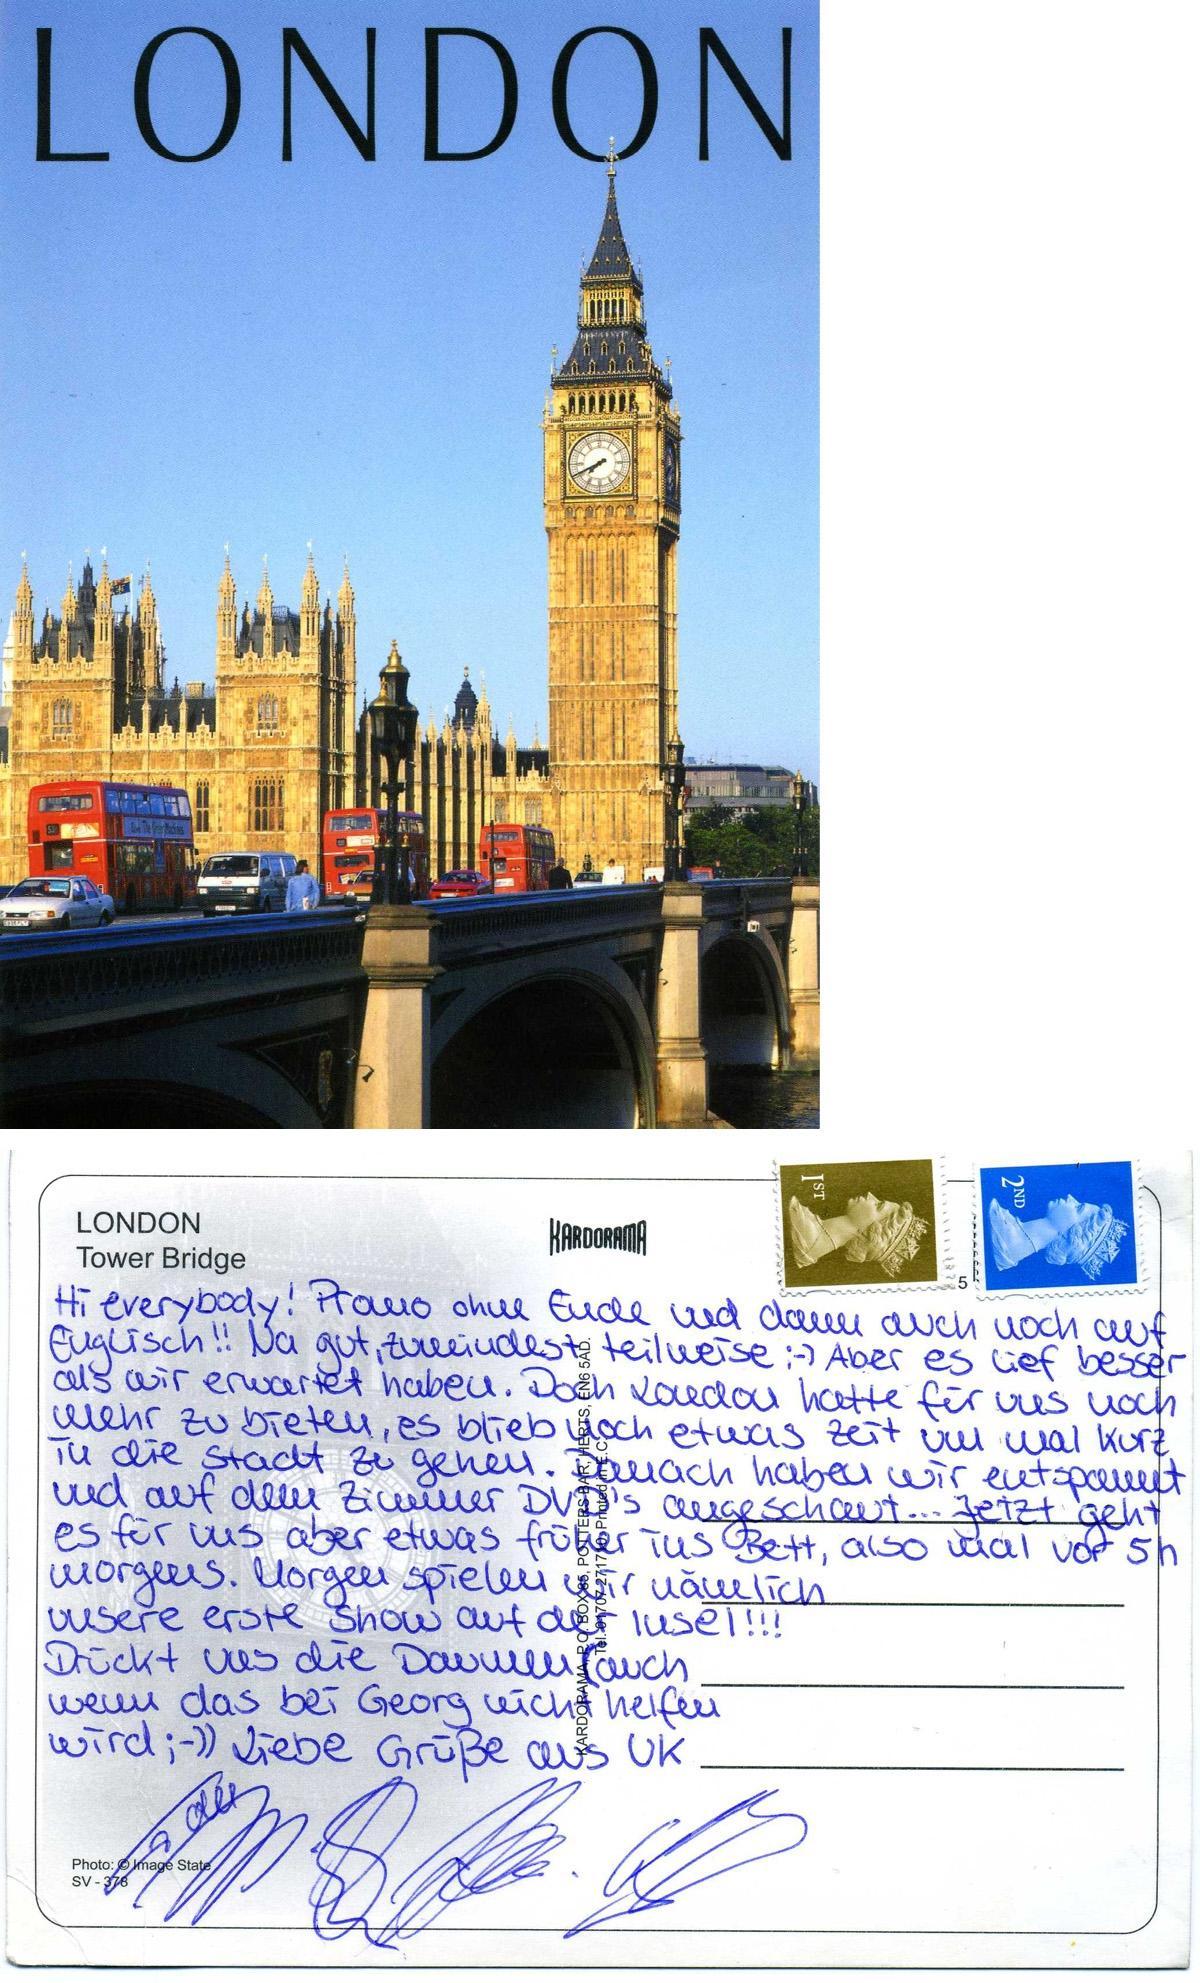 LONDON
LONDON
Tower Bridge
KARDORAMA
1ST
2ND
5
Hi everybody! Promo ohne Ende und dann auch noch auf
Englisch!! Na gut, zumindest teilweise ;-) Aber es lief besser
als wir erwartet haben. Doch London hatte für uns noch
mehr zu bieten, es blieb noch etwas Zeit um mal kurz
in die Stadt zu gehen. Danach haben wir entspannt
und auf dem Zimmer DVD's angeschaut... Jetzt geht
es für uns aber etwas früher ins Bett, also mal vor 5h
morgens. Morgen spielen wir nämlich
unsere erste Show auf der Insel!!!
Drückt uns die Daumen, auch
wenn das bei Georg nicht helfen
wird ;-)) Liebe Grüße aus UK
KARDORAMA, P.O. BOX 85, POTTERS BAR, HERTS, EN6 5AD.
Tel. 01707 271710 Printed in E.C.
Photo: © Image State
SV - 378